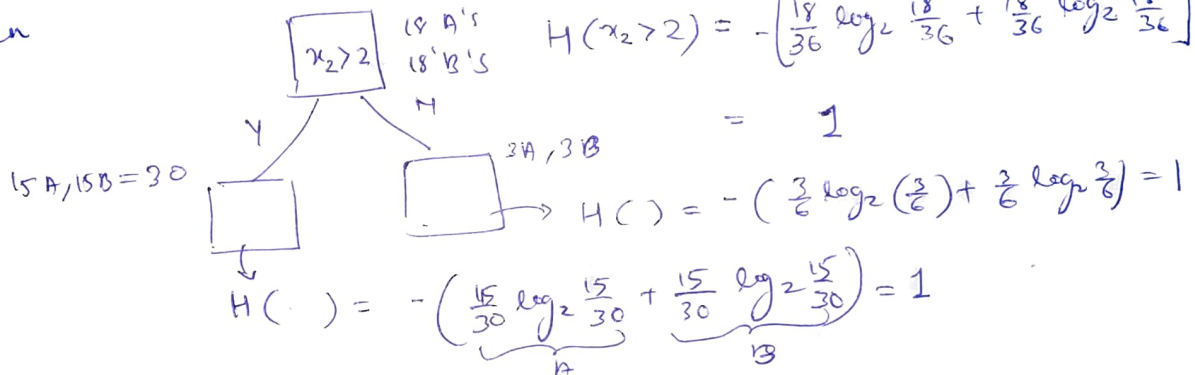 18 A's
18 B's
x₂>2
H(x₂>2) = -[18/36 log₂ 18/36 + 18/36 log₂ 18/36]
Y
N
= 1
15 A, 15 B = 30
3A, 3B
→ H( ) = -(3/6 log₂(3/6) + 3/6 log₂ 3/6) = 1
H( ) = -(15/30 log₂ 15/30 + 15/30 log₂ 15/30) = 1
A
B